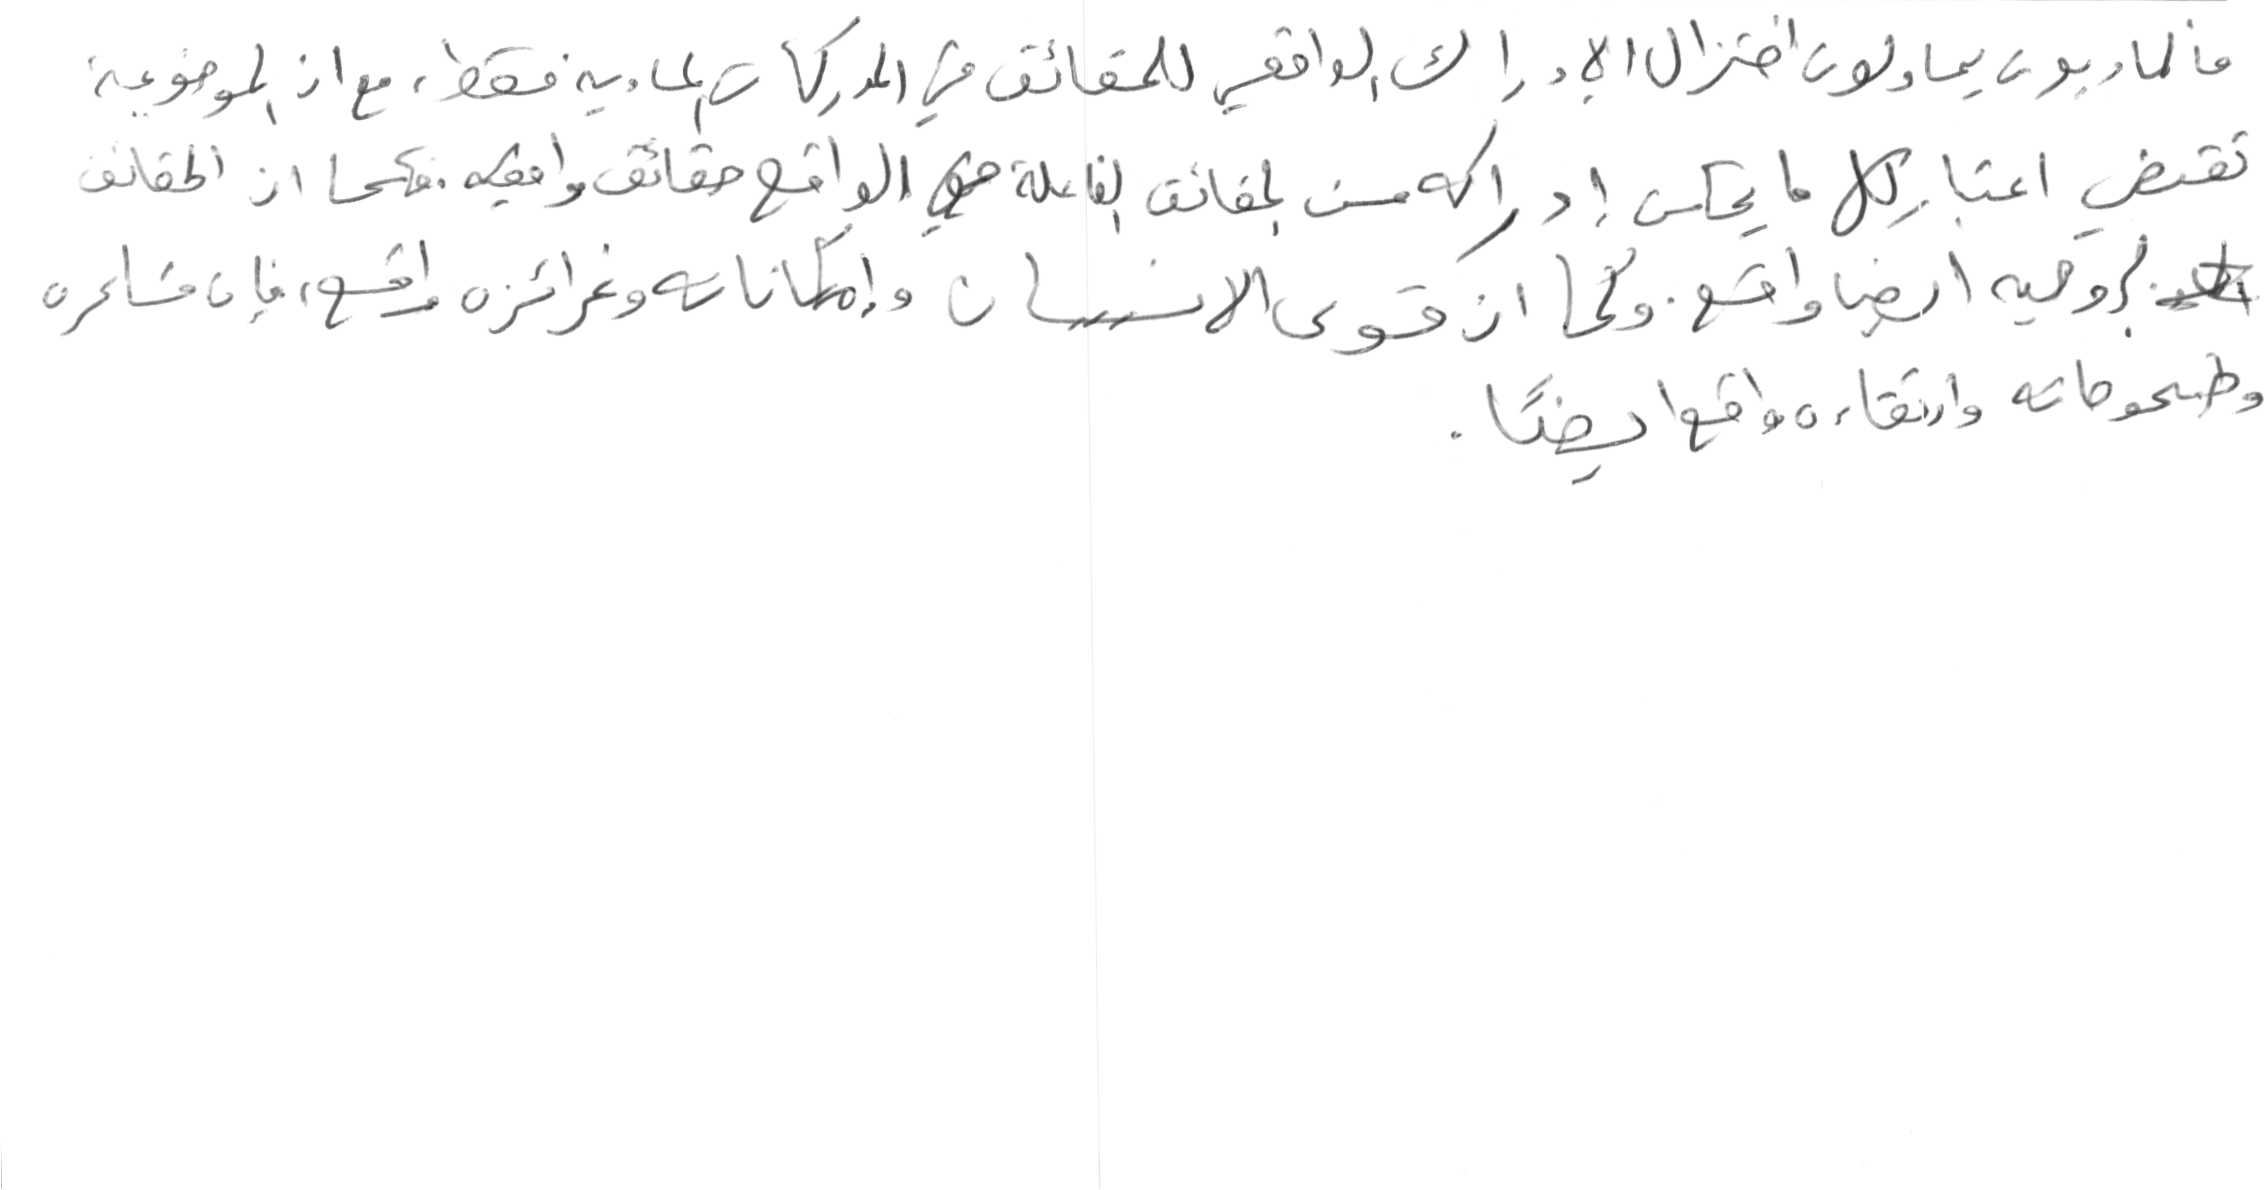 فالماديون يحاولون اختزال الإدراك الواقعي للحقائق في المدركات المادية فقط، مع ان الموضوعية
تقتضي اعتبار كل ما يمكن إدراكه من الحقائق الفاعلة في الواقع حقائق واقعيه. فكما ان الحقائق
الروحيه ايضا واقع. وكما ان قوى الانسان وإمكاناته وغرائزه واقع، فإن مشاعره
وطموحاته وارتقاءه واقع ايضًا.